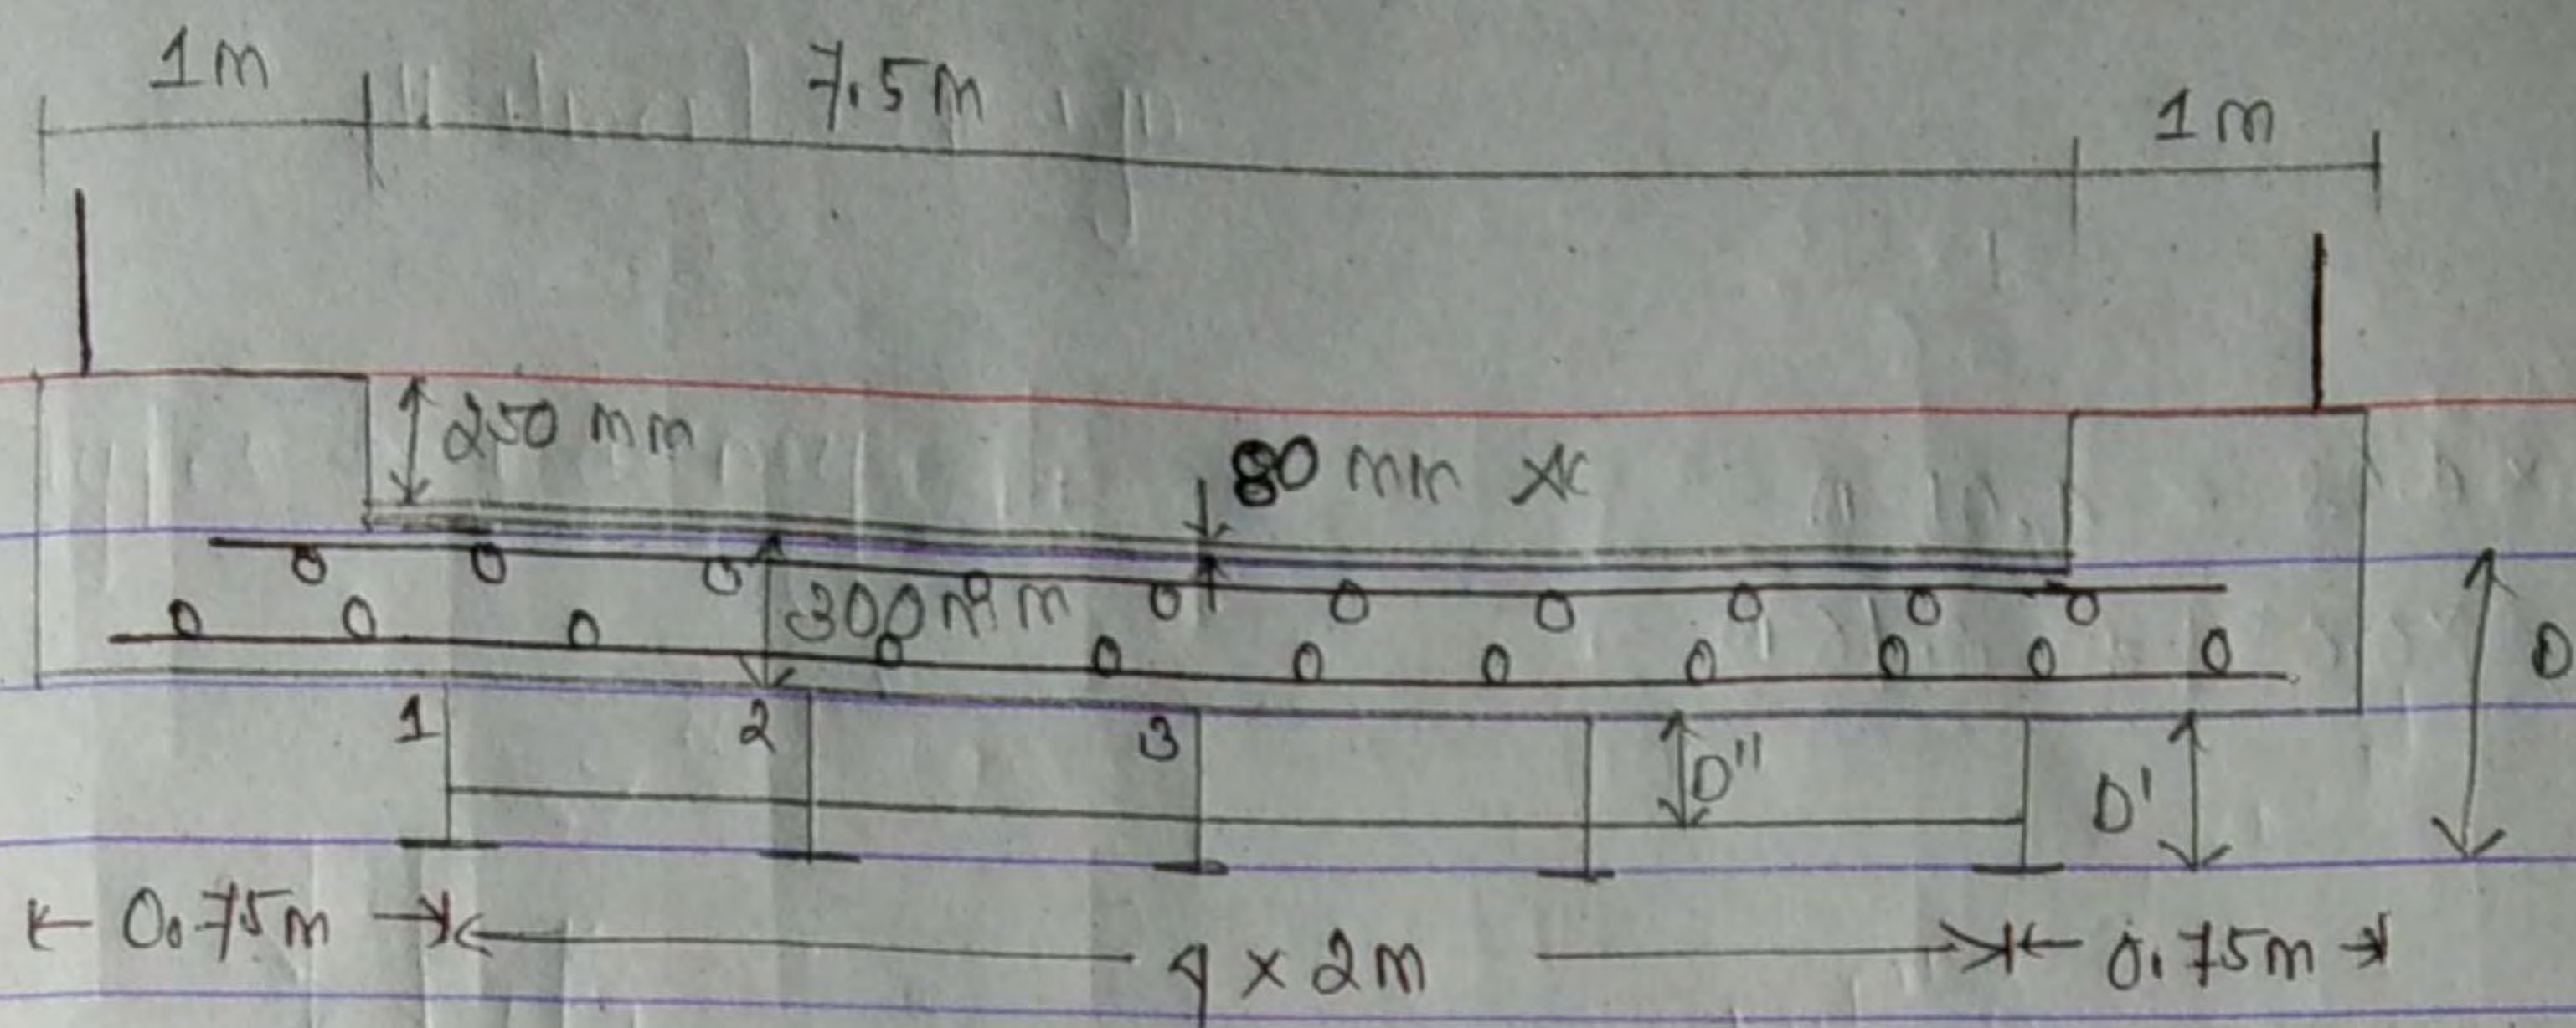 1m
7.5m
1m
250 mm
80 mm
300 mm
1
2
3
D''
D'
D
0.75m
4 x 2m
0.75m